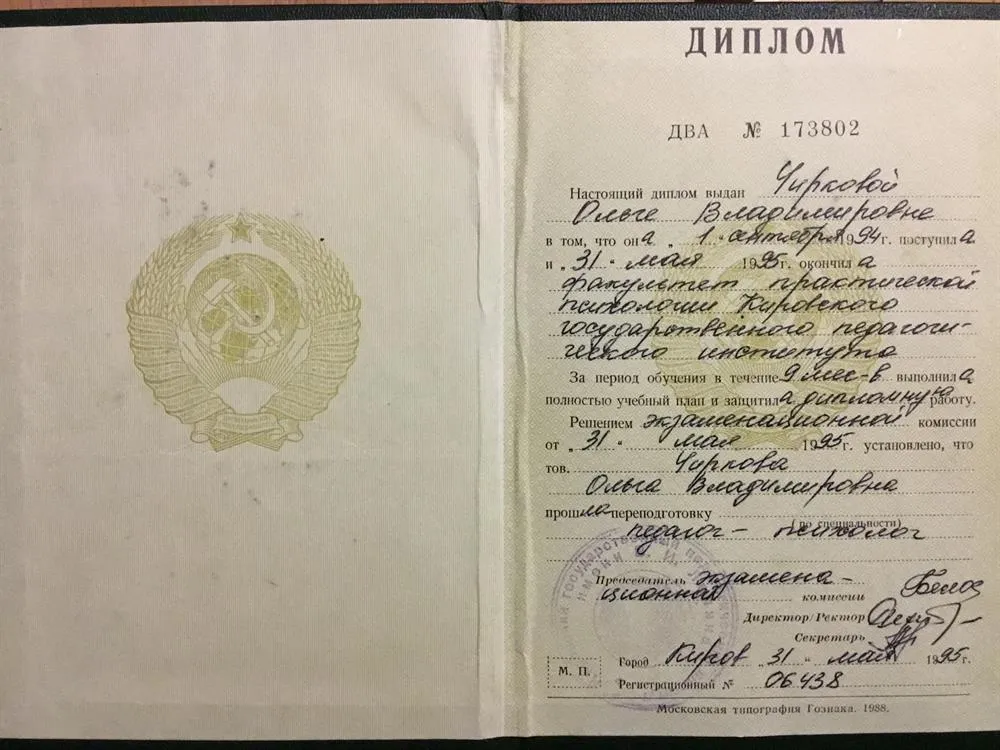 ДИПЛОМ
ДВА № 173802
Настоящий диплом выдан Чирковой
Ольге Владимировне
в том, что она „ 1 “ сентября 1994 г. поступила
и „ 31 “ мая 1995 г. окончила
факультет практической
психологии Кировского
государственного педагоги-
ческого института
За период обучения в течение 9 мес-в выполнила
полностью учебный план и защитила дипломную работу.
Решением экзаменационной комиссии
от „ 31 “ мая 1995 г. установлено, что
тов. Чиркова
Ольга Владимировна
прошла переподготовку
(по специальности)
педагог - психолог
Председатель экзамена-
ционная комиссии
Директор/Ректор
Секретарь
М. П.
Город Киров „ 31 “ мая 1995 г.
Регистрационный № 06438
Московская типография Гознака. 1988.